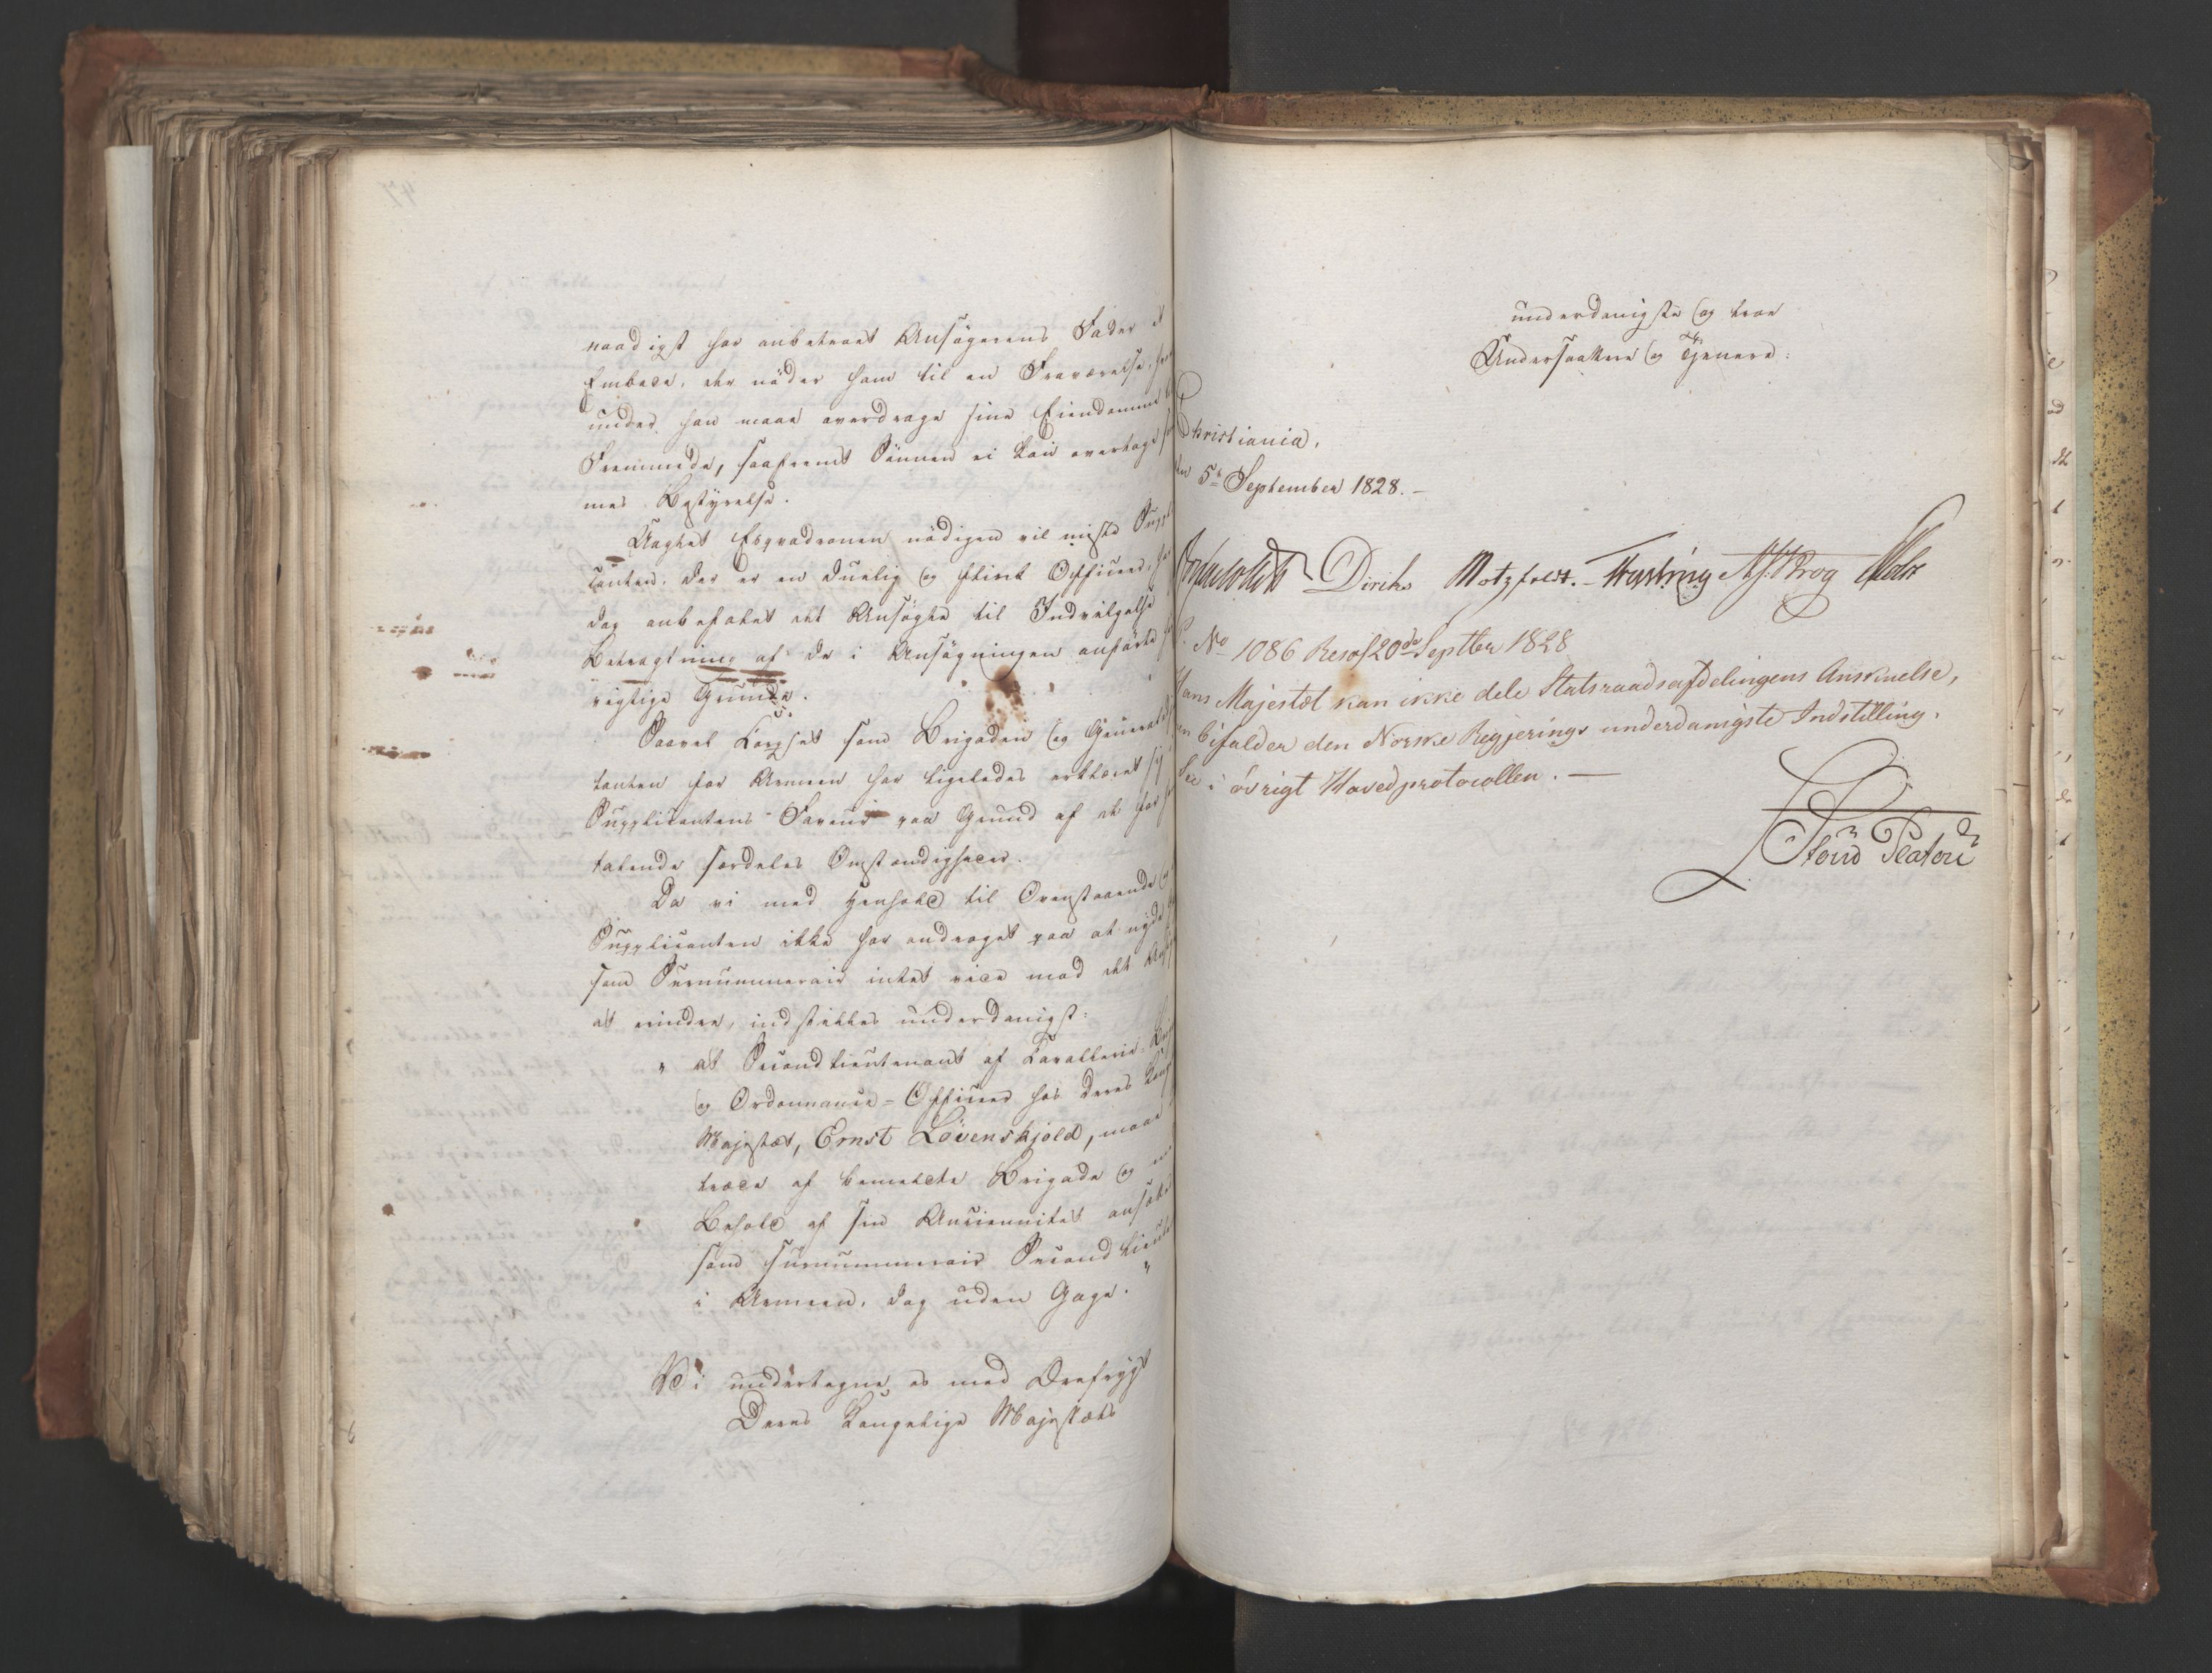 naadigst har anbetroet Ansøgerens Fader et
Embede, der nöder ham til en Fraværelse,
under han maae overdrage sine Eiendomme
Fremmede, saafremt Sönnen ei kan overtage
mes Bestyrelse.
Uagtet Esqvadronen nödigen vil miste Suppl
canten, der er en duelig og flink Officeer,
dog anbefalet det Ansøgte til Indvilgelse
Betragtning af de i Ansøgningen anförte
vigtige Grunde.
Saavel Corpset som Brigaden og General
tanten for Armeen har ligeledes erklæret sig i
Supplicantens Faveur paa Grund af de for
talende særdeles Omstændigheder.
Da vi med Henhold til Ovenstaaende og
Supplicanten ikke har andraget paa at nyde
som Surnummerair intet vide mod det
at erindre, indstilles underdanigst:
" at Secondlieutenant af Cavallerie-
og Ordonnance-Officeer hos Deres
Majestæt, Ernst Lövenskjold, maae
træde af bemeldte Brigade og
Behold af sin Anciennitet ansættes
som surnummerair Second Lieut
i Armeen, dog uden Gage. "
Vi undertegne os med Ærefrygt
Deres Kongelige Majestæts
underdanigste og troe
Undersaatter og Tjenere:
Christiania,
den 5te September 1828. —
Diriks Motzfeldt. Fasting Krog Holst
No 1086 Resol 20de Septber 1828
Hans Majestæt kan ikke dele Statsraadsafdelingens Anskuelse,
en bifalder den Norske Regjerings underdanigste Indstilling.
See i övrigt Hovedprotocollen. —
Platou